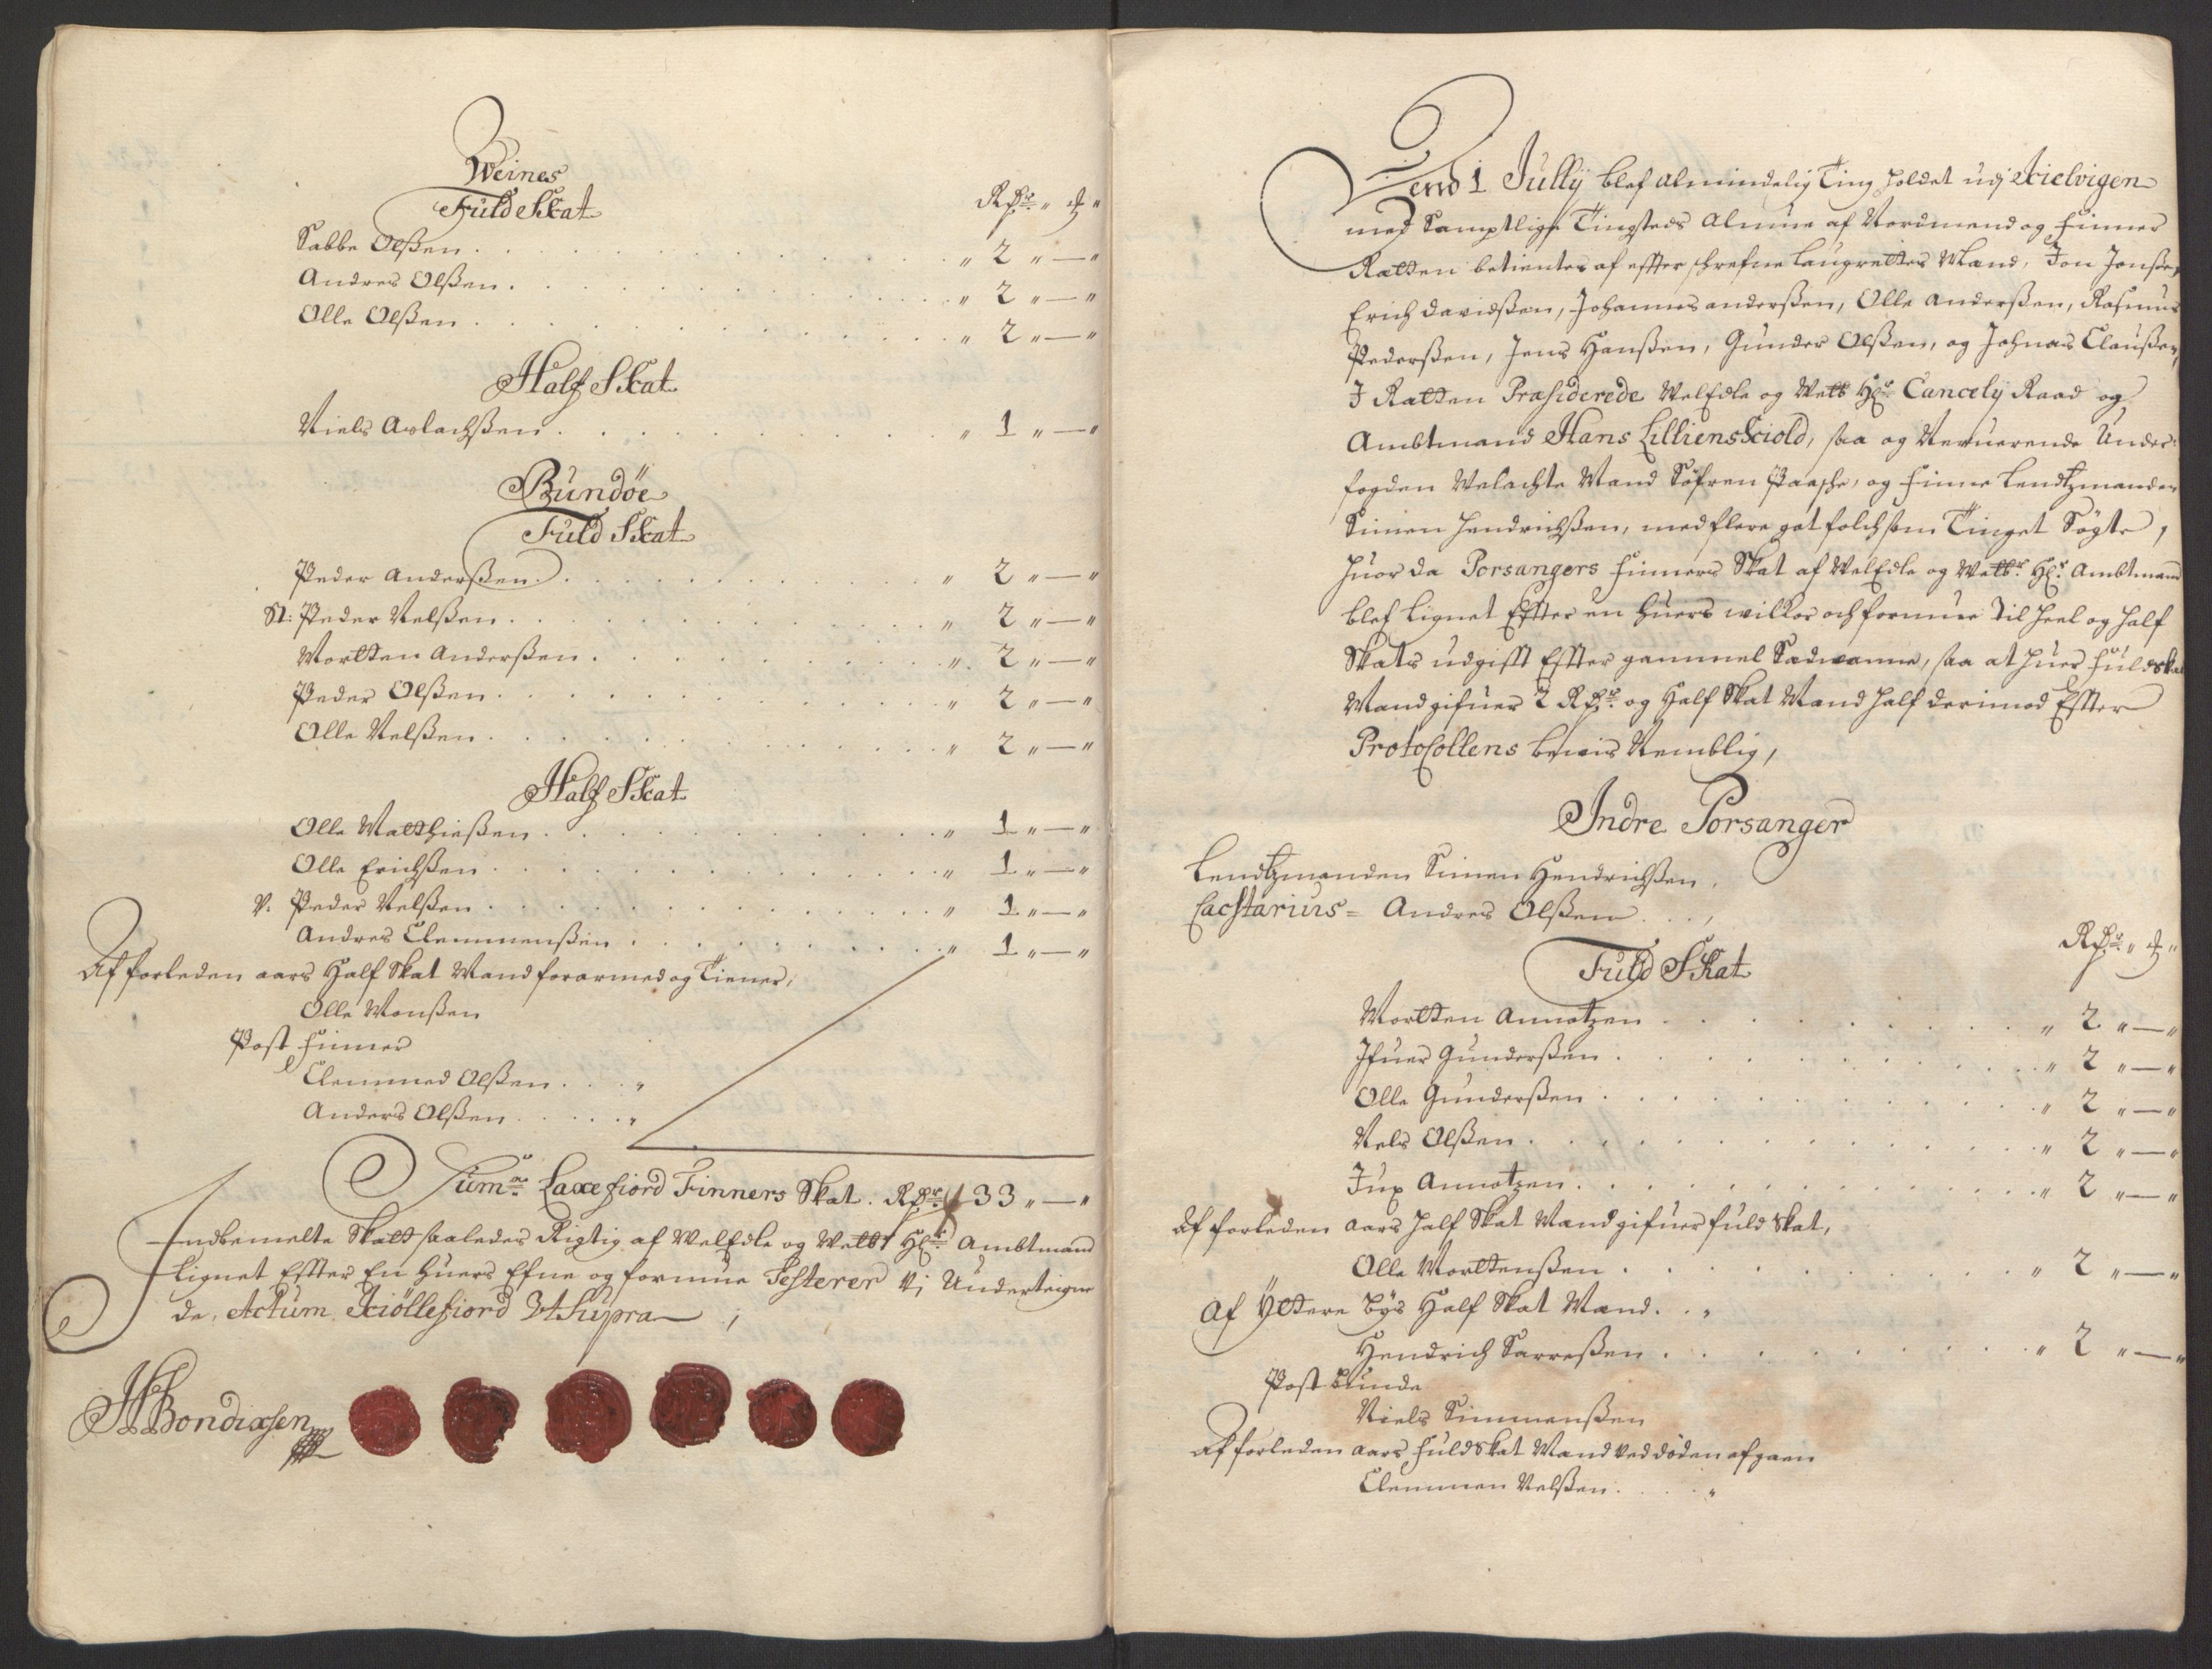 Weines
Fuld Skat
Rdr. ß
Sabbe Olßen . . . " 2 " — "
Andres Olßen . . . " 2 " — "
Olle Olßen . . . " 2 " — "
Half Skat
Niels Aslachßen . . . " 1 " — "
Bundöe
Fuld Skat
Peder Anderßen . . . " 2 " — "
St: Peder Nelßen . . . " 2 " — "
Mortten Anderßen . . . " 2 " — "
Peder Olßen . . . " 2 " — "
Olle Nelßen . . . " 2 " — "
Half Skat
Olle Matthießen . . . " 1 " — "
Olle Erichßen . . . " 1 " — "
V. Peder Nelßen . . . " 1 " — "
Andres Clemmenßen . . . " 1 " — "
Af forleden aars Half Skat Mand forarmed og Tiener,
Olle Monßen
Post Finner
Clemmed Olßen . . . "
Anders Olßen . . . "
Suma Laxefiord Finners Skat . Rdr 33 " — "
Indbemelte Skatt saaledes Rigtig af VelEdle og Velbr Hr: Ambtmand
Lignet Effter En huers Efne og formue Testerer Vj Underteigne
de, Actum Kiöllefiord Ut Supra ,
H Bondixsen
Dend 1 Jullÿ blef almindelig Ting holdet udj Kielvigen
med Samptlige Tingsteds Almue af Nordmend og Finner
Rætten betientes af effterschrefne Laugrettes Mænd, Jon Jonße,
Erich Davidßen, Johannes Anderßen, Olle Anderßen, Rasmus
Pederßen, Jens Hanßen, Gunder Olßen, og Johnas Claußen,
I Rætten Præsiderede VelEdle og Velb Hr: Cancelÿ Raad og
Ambtmand Hans Lillienskiold, saa og Nerverende Under-
fogden Velachte Mand Söfren Paasche, og Finne Lendtzmanden
Simen Hendrichßen, med flere got folch som Tinget Sögte,
huor da Porsangers Finners Skat af VelEdle og Velbr: Hr: Ambtmand
blef Lignet Effter en huers wilkor och formue Til heel og half
Skats udgifft Effter gammel Sædwanne, saa at huer fuldskat
Mand gifuer 2 Rdr. og Half Skat Mand half derimod Effter
Protocollens bewis Nemblig,
Indre Porsanger
Lendtzmanden Simen Hendrichßen,
Andres Olßen . . . ,
Rdr. " ß "
Fuld Skat
Mortten Annotzen . . . " 2 " — "
Ifuer Gunderßen . . . " 2 " — "
Olle Gunderßen . . . " 2 " — "
Nels Olßen . . . " 2 " — "
Jup Annotzen . . . " 2 " — "
Af forleden aars half Skat Mand gifuer fuld skat,
Olle Morttenßen . . . " 2 " — "
Af Ÿttere Bÿs Half Skat Mand . . "
Hendrich Sarreßen . . . " 2 " — "
Post bunde
Niels Simmenßen
Af forleden aars fuldskat Mand ved döden afgaen
Clemmen Nelßen . . . "